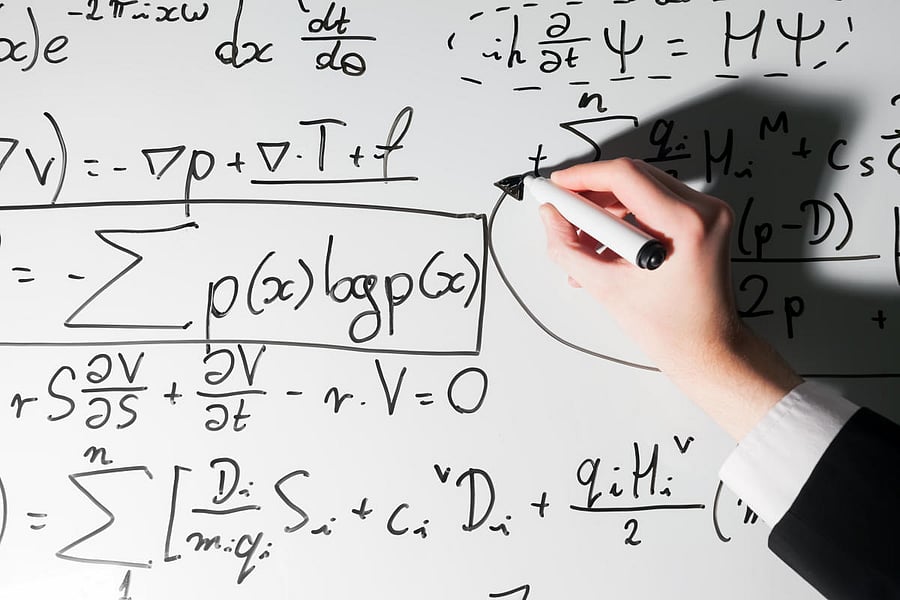 x)e^{-2πixω} dx dt/dθ
iħ ∂/∂t Ψ = HΨ
∇v) = -∇p + ∇·T + f
+ Σ^n q_i/ H_i^M + c_s
= - Σ p(x) log p(x)
(p-D)/2p +
rS ∂V/∂S + ∂V/∂t - r.V = 0
) = Σ_1^n [D_i/m_i q_i S_i + c_i^v D_i + q_i H_i^v/2 (